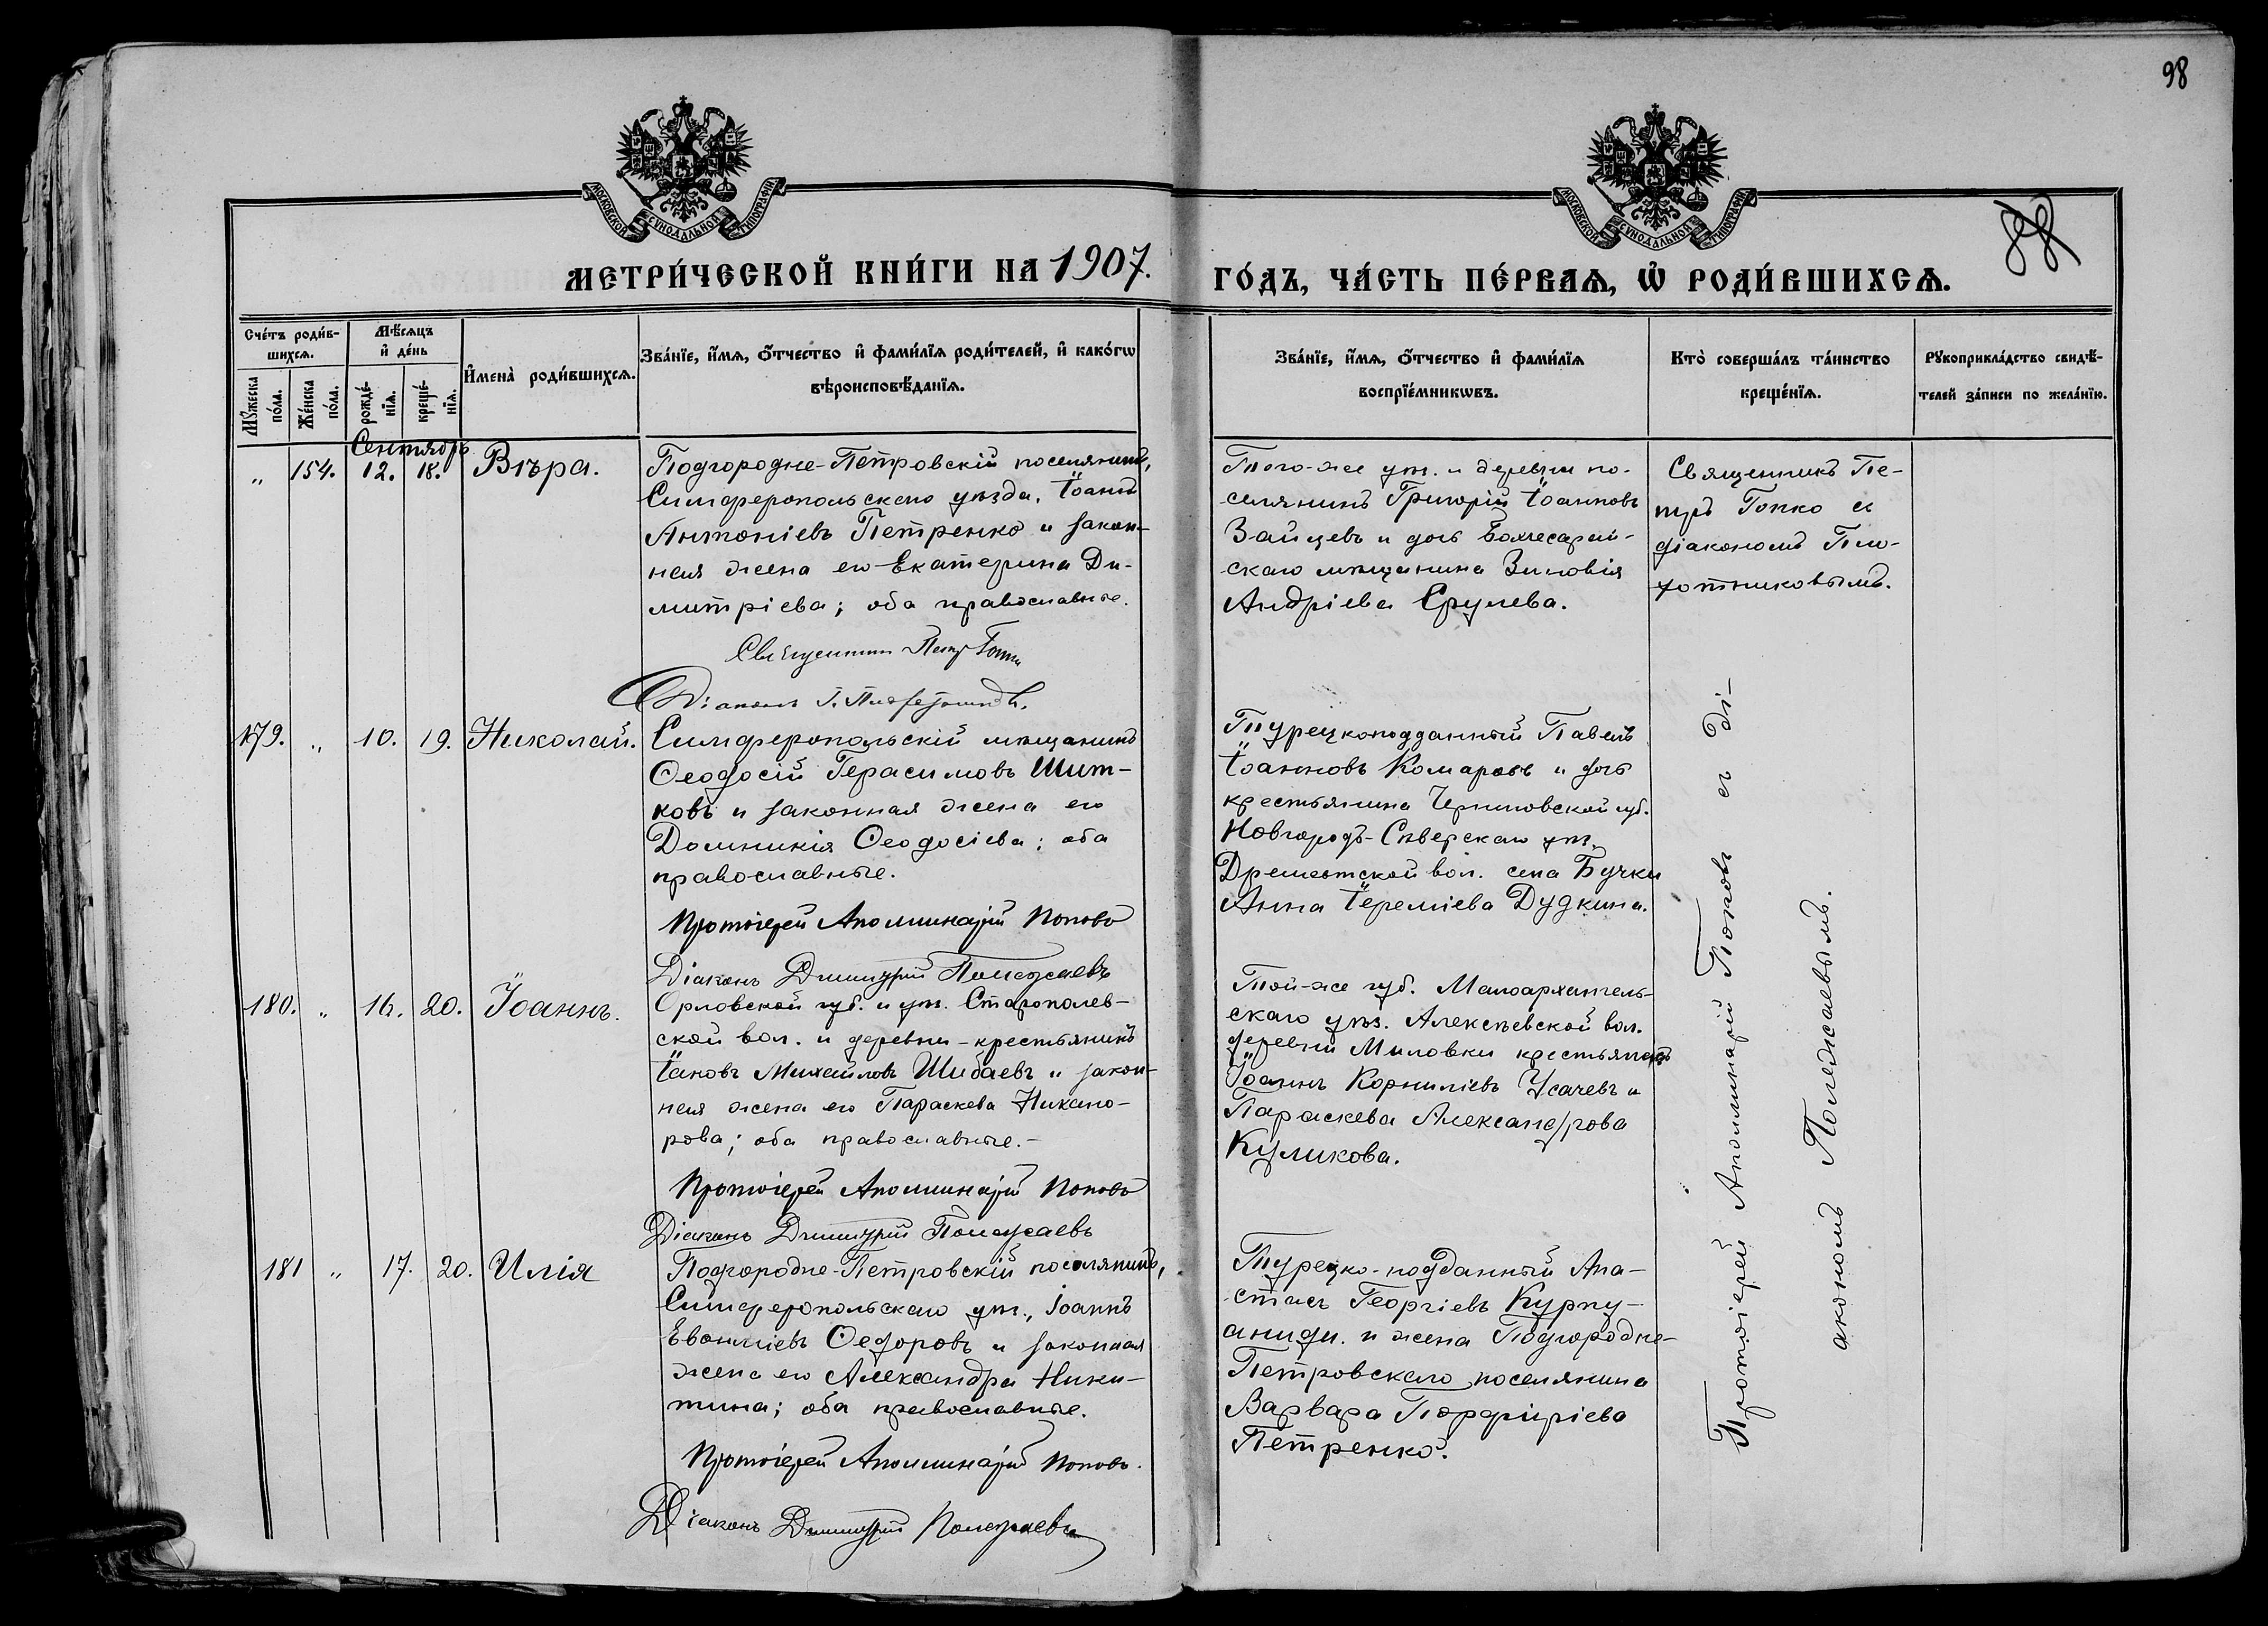 98
МОСКОВСКОЙ СѴНОДАЛЬНОЙ ТИПОГРАФІИ.
МОСКОВСКОЙ СѴНОДАЛЬНОЙ ТИПОГРАФІИ.
88
МЕТРИ́ЧЕСКОЙ КНИ́ГИ НА 1907.
ГО́ДЪ, ЧА́СТЬ ПЕ́РВАѦ, Ѡ҆ РОДИ́ВШИХСѦ.
Сче́тъ роди́в-
шихсѧ.
Мѣ́сѧцъ
и҆ де́нь
Мꙋ́жеска
по́ла.
Же́нска
по́ла.
рожде́-
нїѧ.
креще́-
нїѧ.
И҆мена̀ роди́вшихсѧ.
Зва́нїе, и҆́мѧ, ѻ҆́тчество и҆ фами́лїѧ роди́телей, и҆ како́гѡ
вѣроисповѣ́данїѧ.
Зва́нїе, и҆́мѧ, ѻ҆́тчество и҆ фами́лїѧ
воспрїе́мникѡвъ.
Кто̀ соверша́лъ та́инство
креще́нїѧ.
Рꙋкоприкла́дство свидѣ́-
телей за́писи по жела́нїю.
Сентябрь
„ 154. 12. 18. Вѣра.
Подгородне-Петровскій поселянинъ,
Симферопольскаго уѣзда, Іоаннъ
Антоніевъ Петренко и закон-
ная жена его Екатерина Ди-
митріева; оба православные.
Священникъ Петръ Гопко
Діаконъ
Того-же уѣз. и деревни по-
селянинъ Григорій Іоанновъ
Зайцевъ и дочь Бахчесарай-
скаго мѣщанина Зиновія
Андріева Срулева.
Священникъ Пе-
тръ Гопко съ
діакономъ Пло-
хотниковымъ.
179. „ 10. 19. Николай.
Симферопольскій мѣщанинъ
Ѳеодосій Герасимовъ Шит-
ковъ и законная жена его
Домникія Ѳеодосіева; оба
православные.
Протоіерей Аполлинарій Поповъ
Діаконъ Димитрій Полежаевъ
Турецкоподданный Павелъ
Іоанновъ Комаровъ и дочь
крестьянина Черниговской губ.
Новгородъ-Сѣверскаго уѣз.
вол. села Бучки
Анна Іереміева Дудкина.
180. „ 16. 20. Іоаннъ.
Орловской губ. и уѣз. Старополев-
ской вол. и деревни - крестьянинъ
Іаковъ Михаиловъ Шибаевъ и закон-
ная жена его Параскева Никано-
рова; оба православные.-
Протоіерей Аполлинарій Поповъ
Діаконъ Димитрій Полежаевъ
Той-же губ. Малоархангель-
скаго уѣз. Алексѣевской вол.
деревни Миловки крестьяне
Іоаннъ Корниліевъ Усачевъ и
Параскева Александрова
Куликова.
181 „ 17. 20. Илія
Подгородне-Петровскій поселянинъ,
Симферопольскаго уѣз., Іоаннъ
Ѳедоровъ и законная
жена его Александра Ники-
тина; оба православные.
Протоіерей Аполлинарій Поповъ.
Діаконъ Димитрій Полежаевъ
Турецко-подданный Ана-
стасъ Георгіевъ Курпу-
аниди. и жена Подгородне-
Петровскаго поселянина
Варвара Порфиріева
Петренко.
Протоіерей Аполлинарій Поповъ съ ді-
акономъ Полежаевымъ.